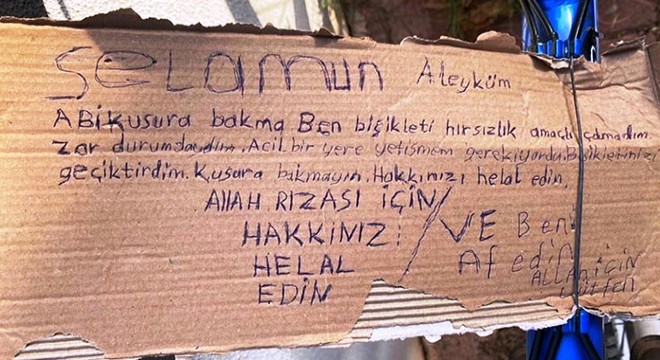 Selamun Aleyküm
ABi kusura bakma Ben bisikleti hırsızlık amaçlı çalmadım
Zor durumdaydım. Acil bir yere yetismem gerekiyordu. Bisikletinizi
geçiktirdim. Kusura bakmayın. Hakkınızı helal edin.
AllAH RIZASI İÇİN
HAKKINIZI
HELAL
EDİN
VE Beni
Af edin
ALLAH için
Lütfen